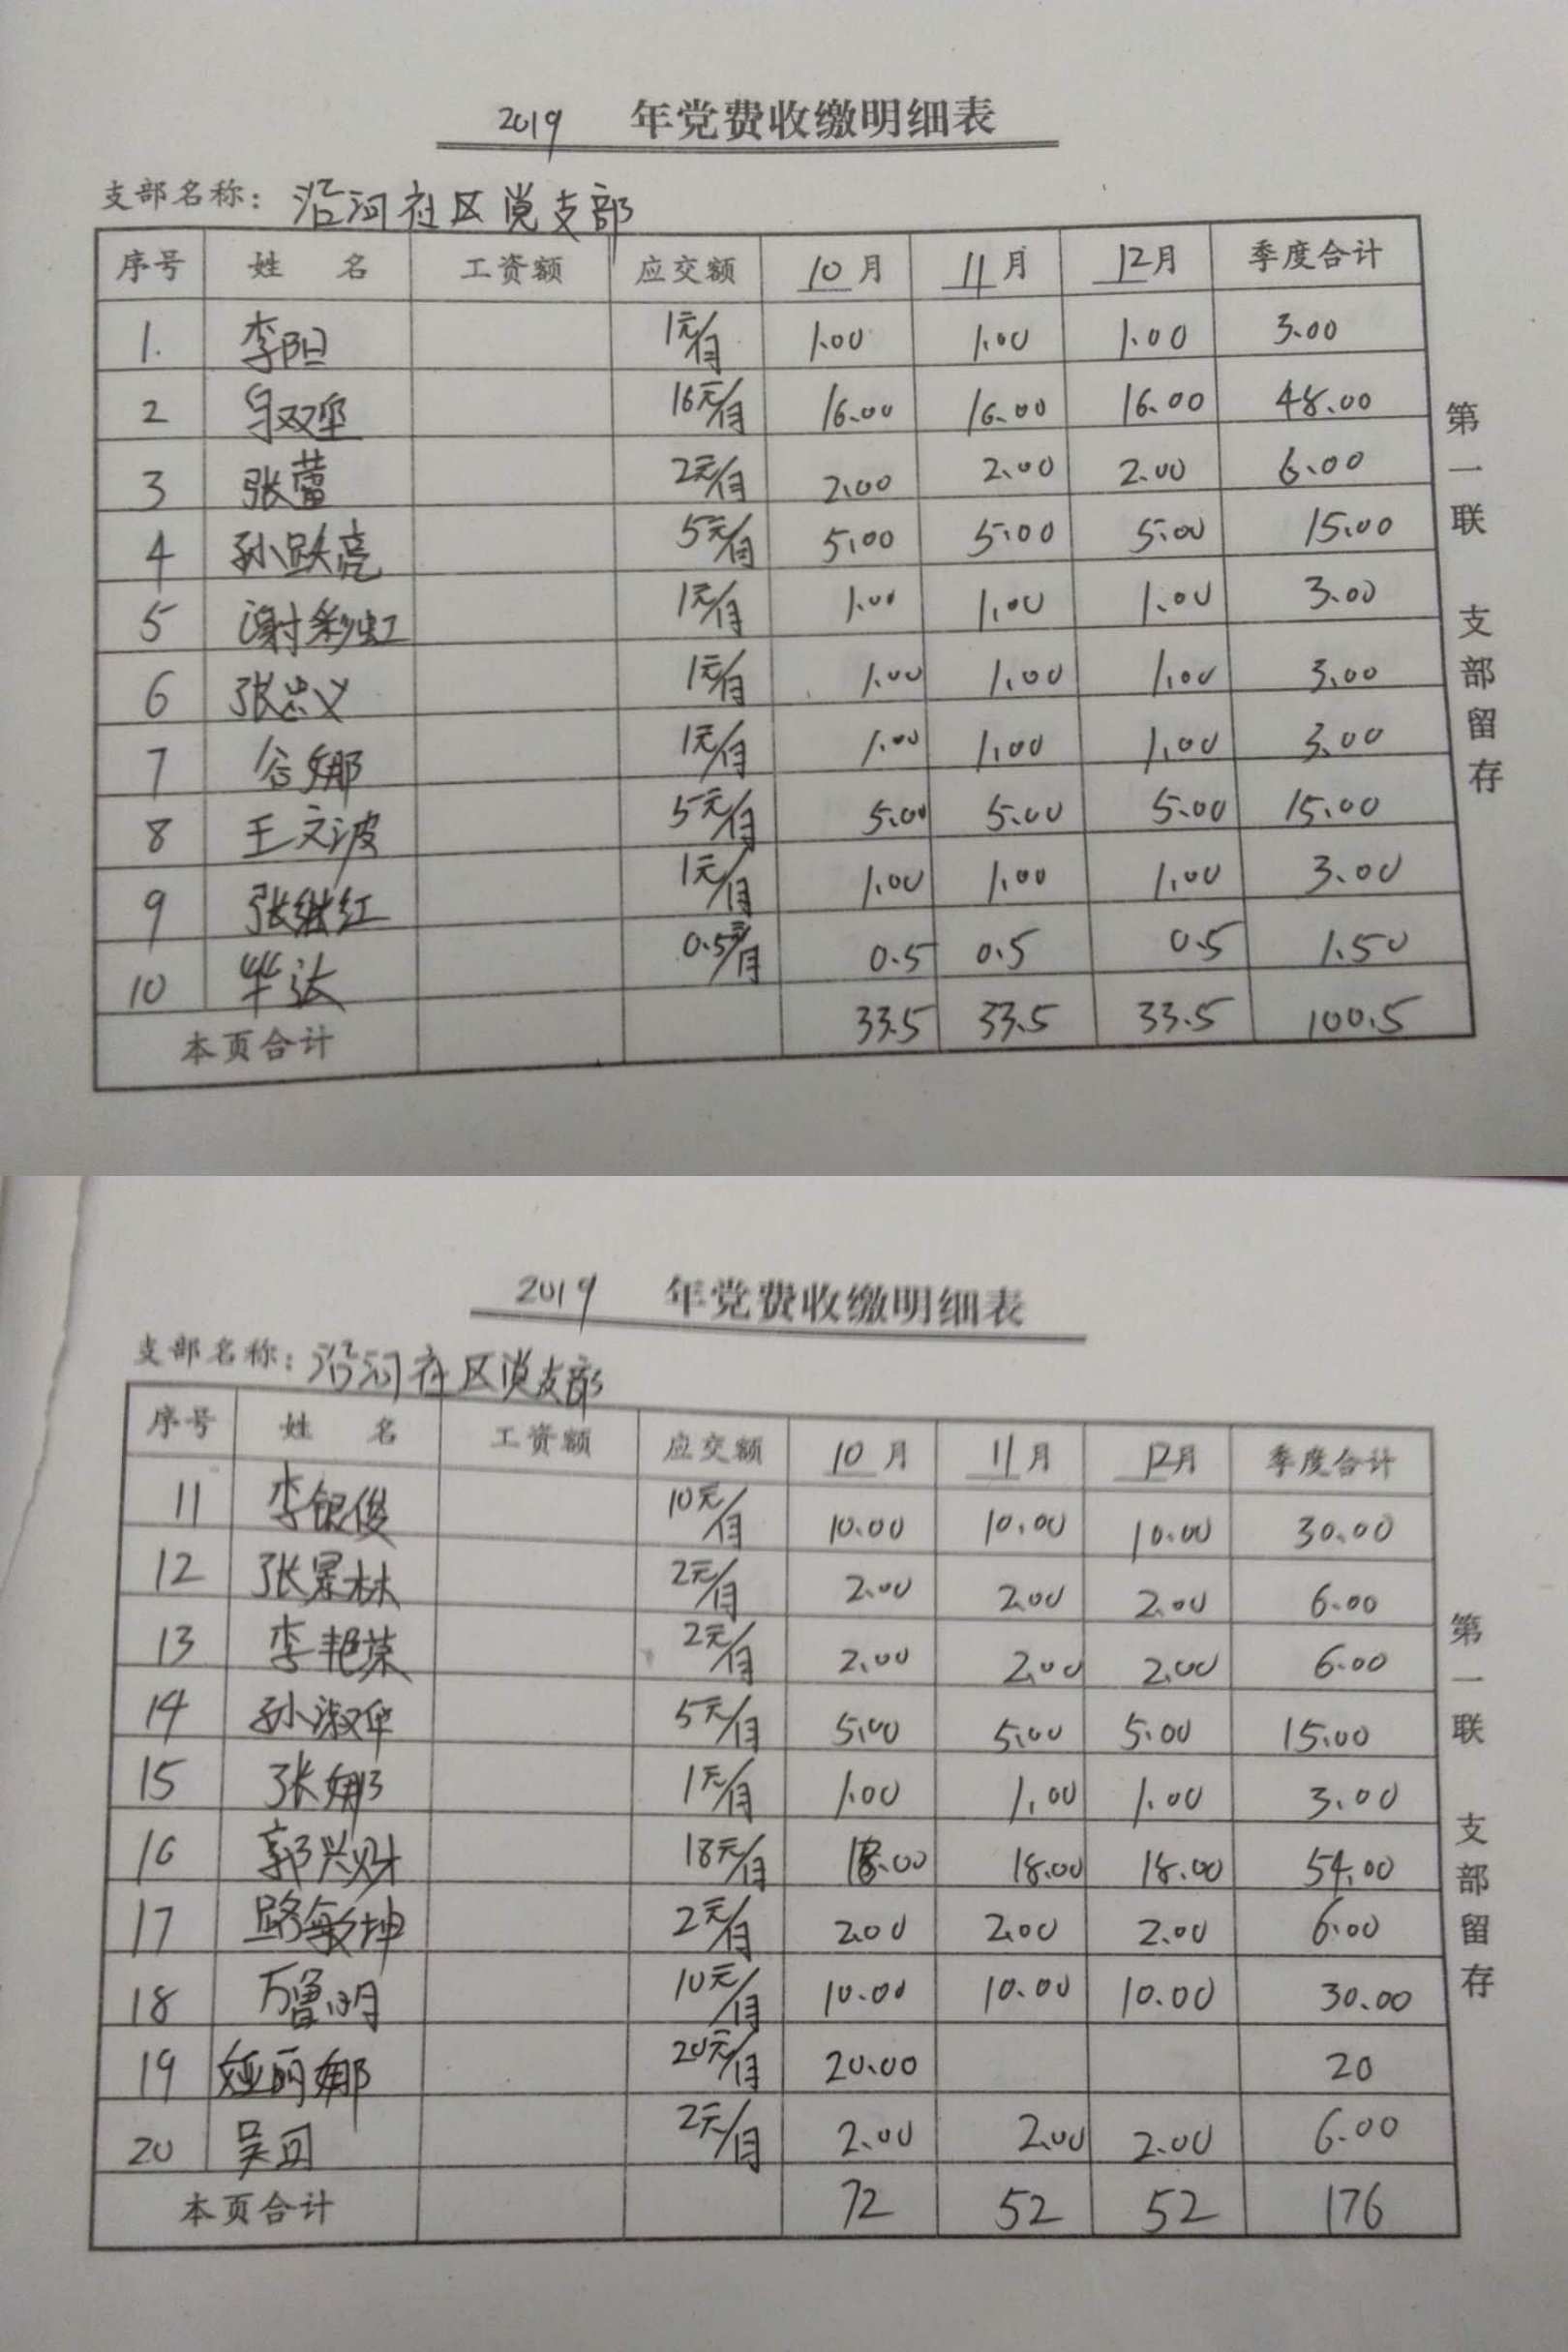 2019 年党费收缴明细表
支部名称: 沿河社区党支部
序号 姓 名 工资额 应交额 10月 11月 12月 季度合计
1. 李阳 1元/月 1.00 1.00 1.00 3.00
2 16元/月 16.00 16.00 16.00 48.00
3 张蕾 2元/月 2.00 2.00 2.00 6.00
4 孙跃亮 5元/月 5.00 5.00 5.00 15.00
5 谢彩虹 1元/月 1.00 1.00 1.00 3.00
6 张忠义 1元/月 1.00 1.00 1.00 3.00
7 谷娜 1元/月 1.00 1.00 1.00 3.00
8 王文波 5元/月 5.00 5.00 5.00 15.00
9 张继红 1元/月 1.00 1.00 1.00 3.00
10 0.5元/月 0.5 0.5 0.5 1.50
本页合计 33.5 33.5 33.5 100.5
第一联 支部留存
2019 年党费收缴明细表
支部名称: 沿河社区党支部
序号 姓 名 工资额 应交额 10月 11月 12月 季度合计
11 李银俊 10元/月 10.00 10.00 10.00 30.00
12 张景林 2元/月 2.00 2.00 2.00 6.00
13 李艳荣 2元/月 2.00 2.00 2.00 6.00
14 孙淑华 5元/月 5.00 5.00 5.00 15.00
15 张娜 1元/月 1.00 1.00 1.00 3.00
16 郭兴财 18元/月 18.00 18.00 18.00 54.00
17 路敏坤 2元/月 2.00 2.00 2.00 6.00
18 万鲁明 10元/月 10.00 10.00 10.00 30.00
19 娅丽娜 20元/月 20.00 20
20 2元/月 2.00 2.00 2.00 6.00
本页合计 72 52 52 176
第一联 支部留存